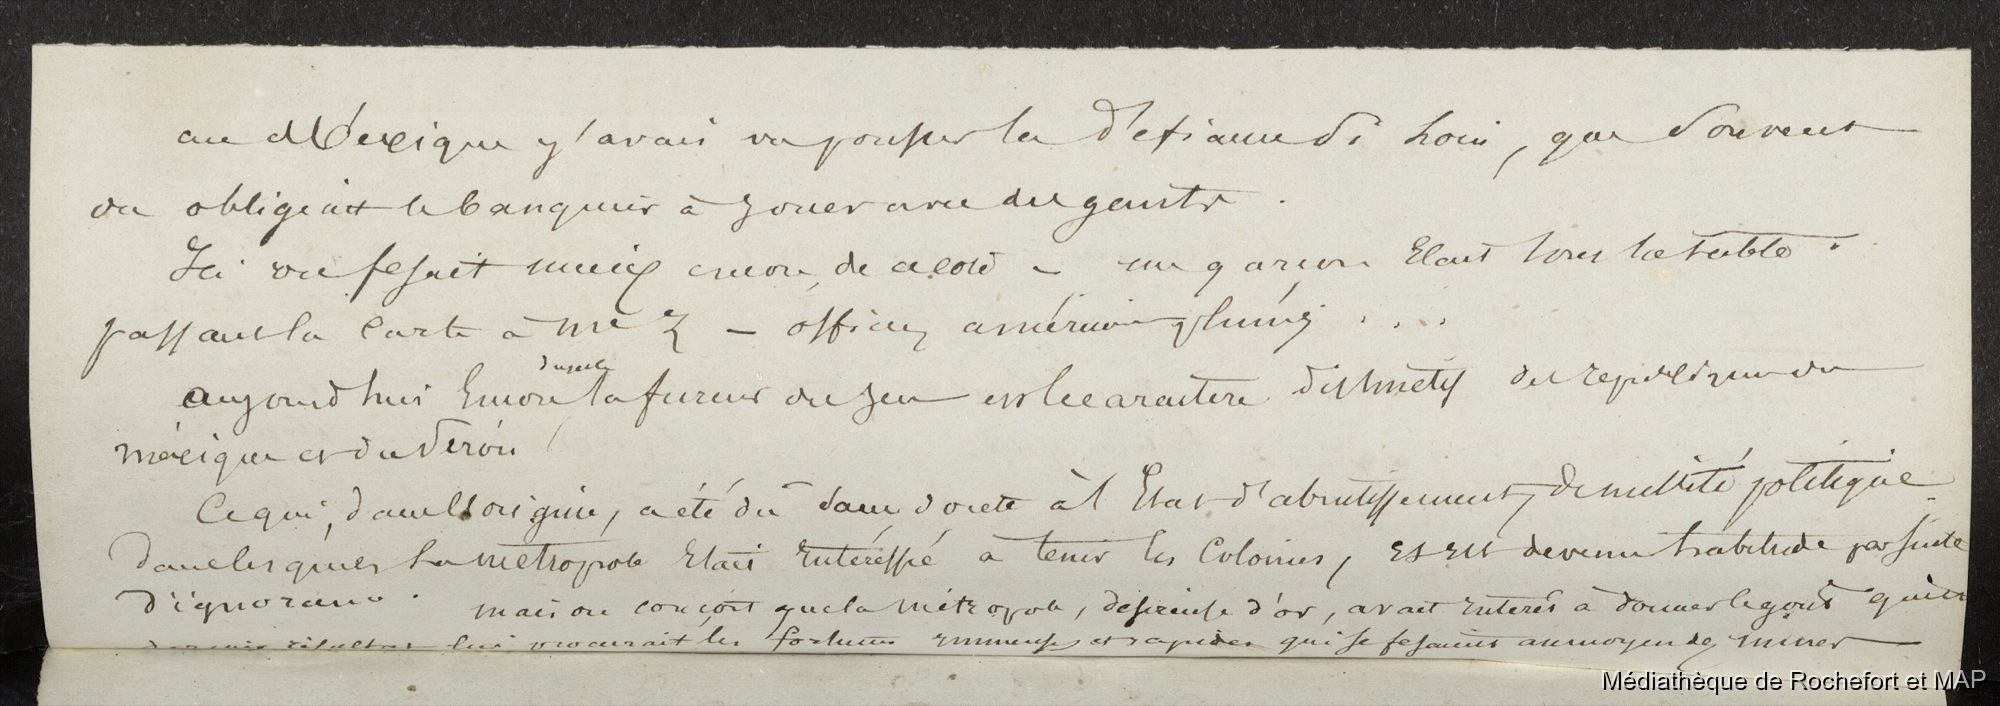 au Mexique j'avais vu pousser la défiance si loin, que souvent
on obligeait le banquier à jouer avec des gants.
Ici on fesait mieux encore, de acord - un garçon Etait sous la table
passant la carte à Mr Z - officier américain
aujourd'hui Encore la fureur du jeu est le caractère distinctif des republiques du
méxique et du Pérou!
Ce qui, dans l'origine, a été dû sans doute à l'Etat d'abrutissement, de nullité politique
dans lesquels la métropole Etait Intéressée à tenir les Colonies, est devenu habitude par suite
d'ignorance. mais on conçoit que la métropole, désireuse d'or, avait Interet à donner le goût
lui procurait les fortunes Immenses et rapides qui se fesaient au moyen de mines
Médiathèque de Rochefort et MAP